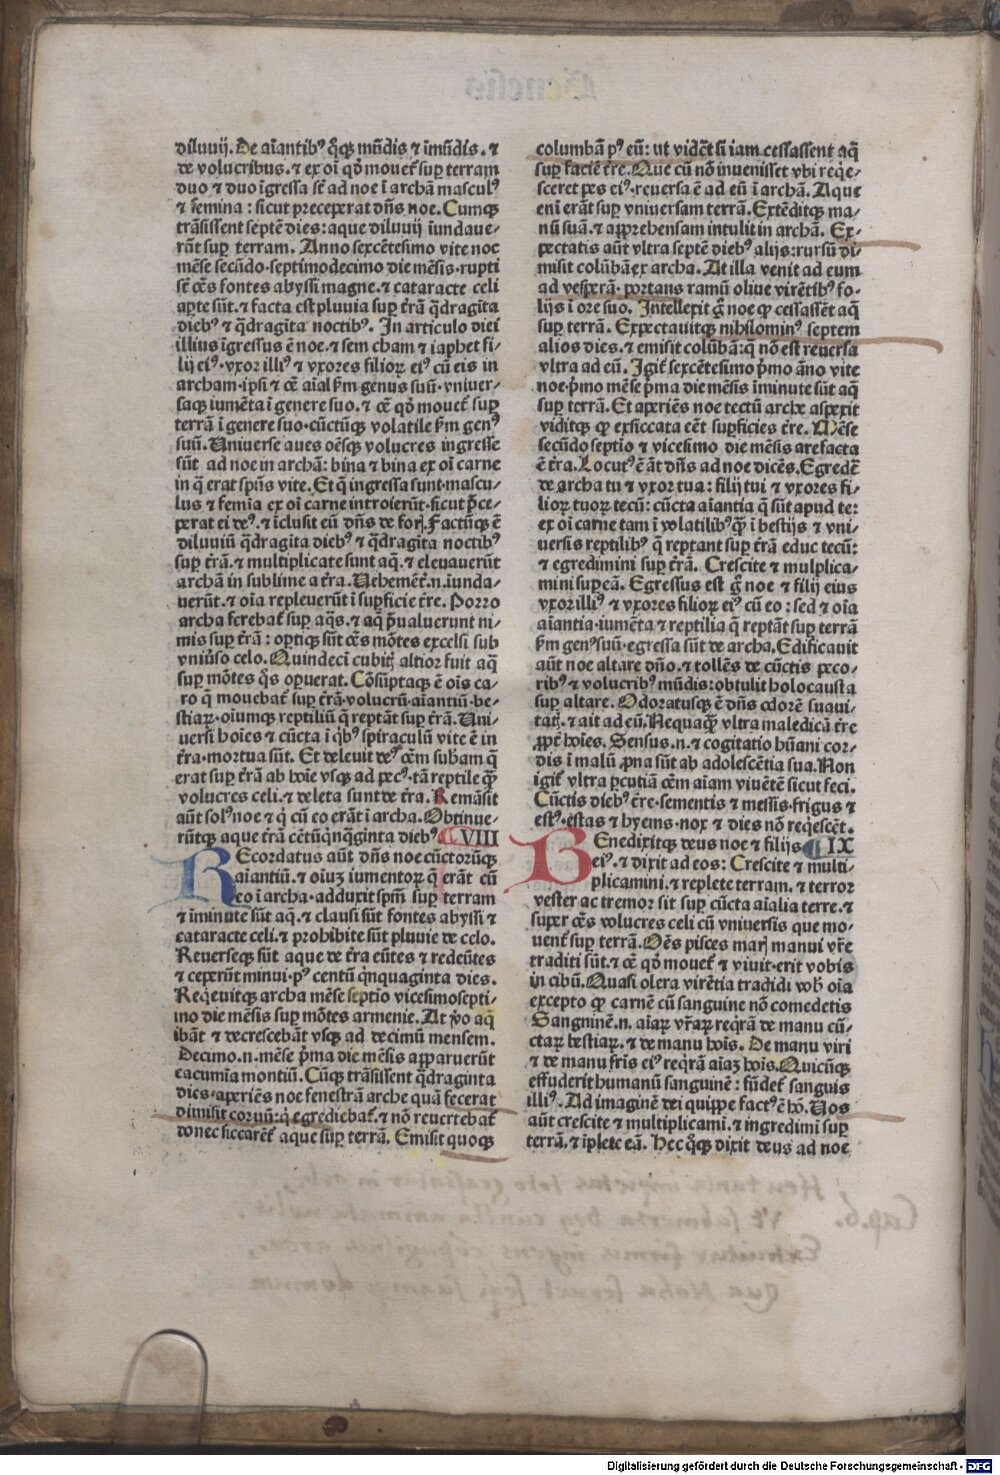 diluuij. De aīantibꝰ q̄ꝫ mūdis ⁊ īmūdis. ⁊
de volucribus. ⁊ ex oī qḋ mouet̄ sup̱ terram
duo ⁊ duo īgressa sē ad noe ī archā masculꝰ
⁊ femina : sicut preceperat dn̄s noe. Cumqꝫ
trāsissent septē dies: aque diluuij iundaue-
rāt sup̱ terram. Anno sexcētesimo vite noe
mēse secūdo·septimodecimo die mēsis·rupti
sē oēs fontes abyssi magne. ⁊ cataracte celi
aꝑte sūt. ⁊ facta est pluuia sup̱ t̄rā q̄dragīta
diebꝰ ⁊ q̄dragīta noctibꝰ. In articulo diei
illius īgressus ē noe. ⁊ sem cham ⁊ iaphet fi-
lij eiꝰ·vxor illiꝰ ⁊ vxores filioꝝ eiꝰ cū eis in
archam·ipsi ⁊ oē aīal ẜm genus suū·vniuer-
saqꝫ iumēta ī genere suo. ⁊ oē qḋ mouet̄ sup̱
terrā ī genere suo·cūctūqꝫ volatile ẜm genꝰ
suū. Uniuerse aues oēsqꝫ volucres ingresse
sūt ad noe in archā: bina ⁊ bina ex oī carne
in q̄ erat spūs vite. Et q̄ ingressa sunt·mascu-
lus ⁊ femīa ex oī carne introierūt·sicut p̄ce-
perat ei deꝰ. ⁊ īclusit eū dn̄s de forꝭ. Factūqꝫ ē
diluuiū q̄dragīta diebꝰ ⁊ q̄dragīta noctibꝰ
sup̱ t̄rā. ⁊ multiplicate sunt aq̄. ⁊ eleuauerūt
archā in sublime a t̄ra. Uehemēt̄.n.īunda-
uerūt. ⁊ oīa repleuerūt ī sup̱ficie t̄re. Porro
archa ferebat̄ sup̱ aq̄s. ⁊ aq̄ p̄ualuerunt ni-
mis sup̱ t̄rā : oꝑtiqꝫ sūt oēs mōtes excelsi sub
vniūso celo. Quindecī cubitꝭ altior fuit aq̄
sup̱ mōtes q̄s oꝑuerat. Cōsūptaqꝫ ē oīs ca-
ro q̄ mouebat̄ sup̱ t̄rā·volucrū·aīantiū·be-
stiaꝝ·oiumqꝫ reptiliū q̄ reptāt sup̱ t̄rā. Uni-
uersi hoīes ⁊ cūcta ī q̇bꝰ spiraculū vite ē in
t̄ra·mortua sūt. Et deleuit deꝰ oēm subām q̄
erat sup̱ t̄rā ab hoīe vsqꝫ ad pecꝰ·tā reptile q̄ꝫ
volucres celi. ⁊ deleta sunt de t̄ra. Remāsit
aūt solꝰ noe ⁊ q̇ cū eo erāt ī archa. Obtinue-
rūtqꝫ aque t̄rā cētūq̇nq̄ginta diebꝰ. VIII
Recordatus aūt dn̄s noe cūctorūqꝫ
aīantiū. ⁊ oiuꝫ iumentoꝝ q̄ erāt cū
eo ī archa·adduxit sp̄m sup̱ terram
⁊ īminute sūt aq̄. ⁊ clausi sūt fontes abyssi ⁊
cataracte celi. ⁊ prohibite sūt pluuie de celo.
Reuerseqꝫ sūt aque de t̄ra eūtes ⁊ redeūtes
⁊ ceperūt minui·pꝰ centū q̇nquaginta dies.
Reqeuitqꝫ archa mēse septīo vicesimosepti-
mo die mēsis sup̱ mōtes armenie. At ꝟo aq̄
ibāt ⁊ decrescebāt vsqꝫ ad decimū mensem.
Decimo.n.mēse p̄ma die mēsis apparuerūt
cacumīa montiū. Cūqꝫ trāsissent q̄draginta
dies·aperiēs noe fenestrā arche quā fecerat
dimisit coruū: q̇ egrediebat̄. ⁊ nō reuertebat̄
donec siccarēt̄ aque sup̱ terrā. Emisit quoqꝫ
columbā pꝰ eū: vt vidēt si iam cessassent aq̄
sup̱ faciē t̄re. Que cū nō inuenisset vbi reqe-
sceret pes eiꝰ·reuersa ē ad eū ī archā. Aque
enī erāt sup̱ vniuersam terrā. Extēditqꝫ ma-
nū suā. ⁊ apprehensam intulit in archā. Ex-
pectatis aūt vltra septē diebꝰ alijs: rursū di-
misit colūbā ex archa. At illa venit ad eum
ad vesperā·portans ramū oliue virētibꝰ fo-
lijs ī ore suo. Intellexit g̊ noe qꝫ cessassēt aq̄
sup̱ terrā. Expectauitqꝫ nihilominꝰ septem
alios dies. ⁊ emisit colūbā: q̄ nō est reuersa
vltra ad eū. Igit̄ sexcētesimo p̄mo āno vite
noe·p̄mo mēse p̄ma die mēsis īminute sūt aq̄
sup̱ terrā. Et aperiēs noe tectū arche aspexit
viditqꝫ qꝫ exsiccata eēt sup̱ficies t̄re. Mēse
secūdo septīo ⁊ vicesimo die mēsis arefacta
ē t̄ra. Locutꝰ ē āt dn̄s ad noe dicēs. Egredē
de archa tu ⁊ vxor tua: filij tui ⁊ vxores fi-
lioꝝ tuoꝝ tecū: cūcta aīantia q̄ sūt apud te:
ex oī carne tam ī volatilibꝰ q̄ꝫ ī bestijs ⁊ vni-
uersis reptilibꝰ q̄ reptant sup̱ t̄rā educ tecū:
⁊ egredimini sup̱ t̄rā. Crescite ⁊ mulplica-
mini sup̱ eā. Egressus est g̊ noe ⁊ filij eius
vxor illiꝰ ⁊ vxores filioꝝ eiꝰ cū eo : sed ⁊ oīa
aīantia·iumēta ⁊ reptilia q̄ reptāt sup̱ terrā
ẜm genꝰ suū·egressa sūt de archa. Edificauit
aūt noe altare dn̄o. ⁊ tollēs de cūctis peco-
ribꝰ ⁊ volucribꝰ mūdis: obtulit holocausta
sup̱ altare. Odoratusqꝫ ē dn̄s odorē suaui-
tatꝭ. ⁊ ait ad eū. Nequaq̄ꝫ vltra maledicā t̄re
ꝓpt̄ hoīes. Sensus.n. ⁊ cogitatio hūani cor-
dis ī malū ꝓna sūt ab adolescētia sua. Non
igit̄ vltra ꝑcutiā oēm aīam viuētē sicut feci.
Cūctis diebꝰ t̄re·sementis ⁊ messis·frigus ⁊
estꝰ·estas ⁊ hyems·nox ⁊ dies nō reqescēt.
Benedixitqꝫ deus noe ⁊ filijs IX
eiꝰ. ⁊ dixit ad eos: Crescite ⁊ multi-
plicamini. ⁊ replete terram. ⁊ terror
vester ac tremor sit sup̱ cūcta aīalia terre. ⁊
super oēs volucres celi cū vniuersis que mo-
uent̄ sup̱ terrā. Oēs pisces marꝭ manui vr̄e
traditi sūt. ⁊ oē qḋ mouet̄ ⁊ viuit·erit vobis
in cibū. Quasi olera virētia tradidi vob̄ oīa
excepto qꝫ carnē cū sanguine nō comedetis
Sangninē.n. aīaꝝ vr̄aꝝ reqrā de manu cū-
ctaꝝ bestiaꝝ. ⁊ de manu hoīs. De manu viri
⁊ de manu fr̄is eiꝰ reqrā aīaꝫ hoīs. Quicūqꝫ
effuderit humanū sanguinē : fūdet̄ sanguis
illiꝰ. Ad imaginē dei quippe factꝰ ē hō. Uos
aūt crescite ⁊ multiplicamī. ⁊ ingredimī sup̱
terrā. ⁊ īplete eā. Hec q̄ꝫ dixit deus ad noe
Digitalisierung gefördert durch die Deutsche Forschungsgemeinschaft - DFG